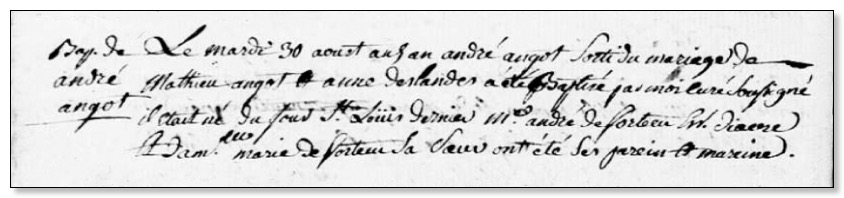 Bap. de Le mardi 30 aoust aud. an andré angot sorti du mariage de
andré Mathieu angot et anne deslandes a été Baptisé par moi curé soussigné
angot il était né du jour St. Loüis dernier Mre. andré de sorteau diacre
et dam.elle marie de sorteau sa sœur ont été ses parein et mareine.